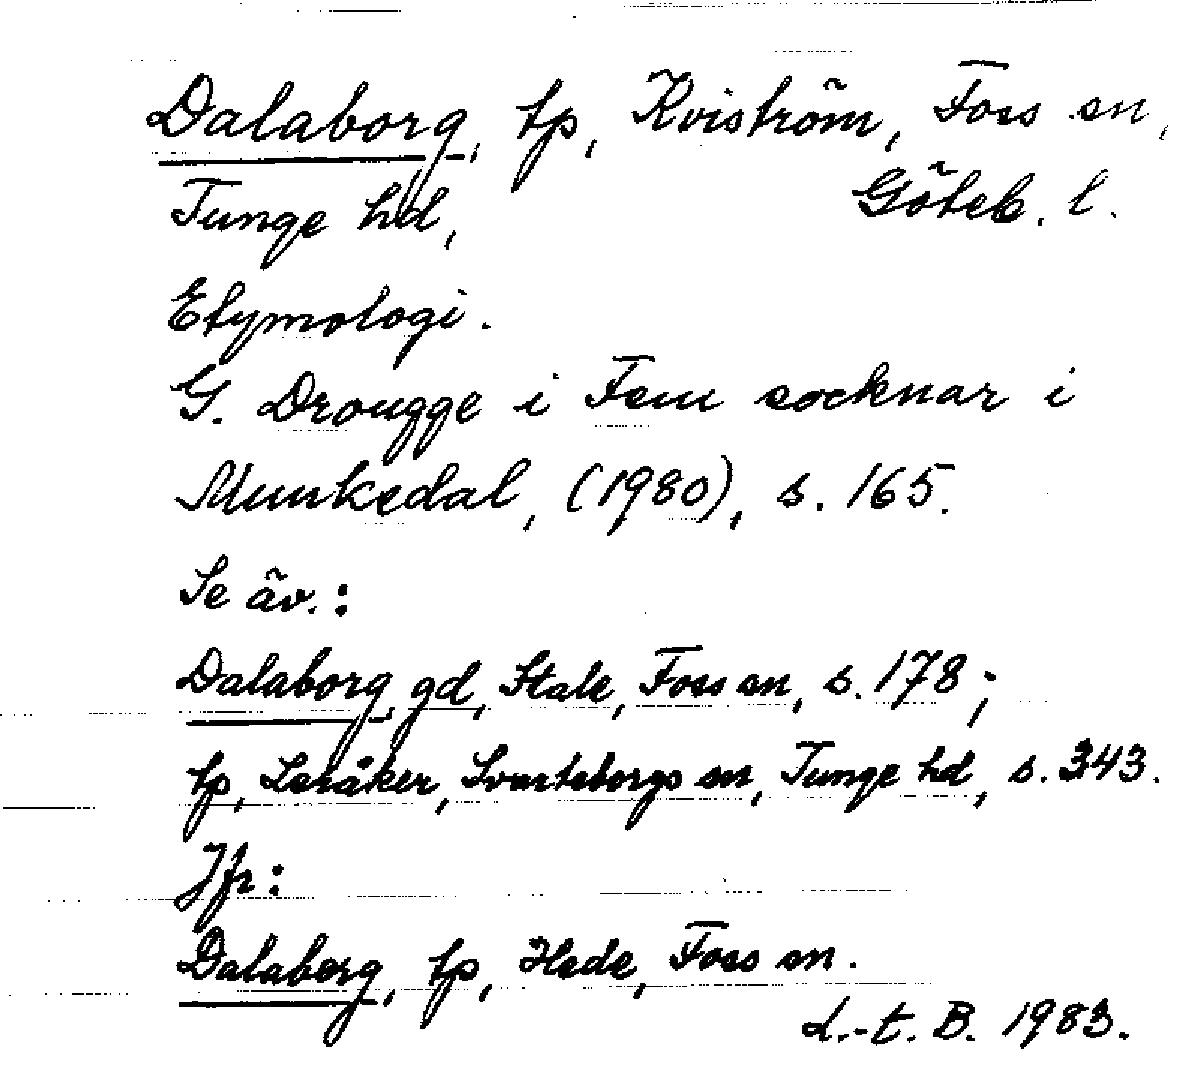 Dalaborg, tp, Kviström, Foss sn,
Tunge hd, Göteb. l.
Etymologi.
G. Drougge i Fem socknar i
Munkedal, (1980), s. 165.
Se äv.:
Dalaborg gd, Stale, Foss sn, s. 178;
tp, Lesåker, Svarteborgs sn, Tunge hd, s. 343.
Jfr:
Dalaborg, tp, Hede, Foss sn.
L.-t. B. 1983.